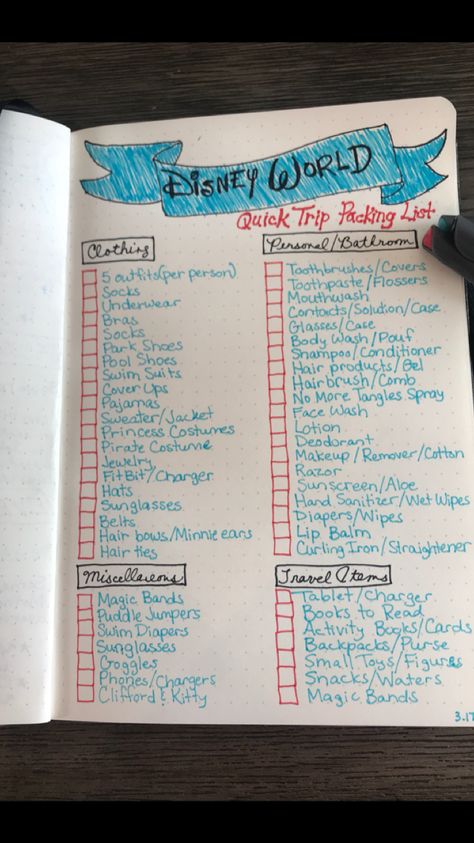 Disney World
Quick Trip Packing List
Clothing
5 outfits (per person)
Socks
Underwear
Bras
Socks
Park Shoes
Pool Shoes
Swim Suits
Cover Ups
Pajamas
Sweater/Jacket
Princess Costumes
Pirate Costume
Jewelry
FitBit/Charger
Hats
Sunglasses
Belts
Hair bows/Minnie ears
Hair ties
Personal/Bathroom
Toothbrushes/Covers
Toothpaste/Flossers
Mouthwash
Contacts/Solution/Case
Glasses/Case
Body Wash/Pouf
Shampoo/Conditioner
Hair products/Gel
Hairbrush/Comb
No More Tangles Spray
Face Wash
Lotion
Deodorant
Makeup/Remover/Cotton
Razor
Sunscreen/Aloe
Hand Sanitizer/Wet Wipes
Diapers/Wipes
Lip Balm
Curling Iron/Straightener
Miscellaneous
Magic Bands
Puddle Jumpers
Swim Diapers
Sunglasses
Goggles
Phones/Chargers
Clifford & Kitty
Travel Items
Tablet/Charger
Books to Read
Activity Books/Cards
Backpacks/Purse
Small Toys/Figures
Snacks/Waters
Magic Bands
3.17